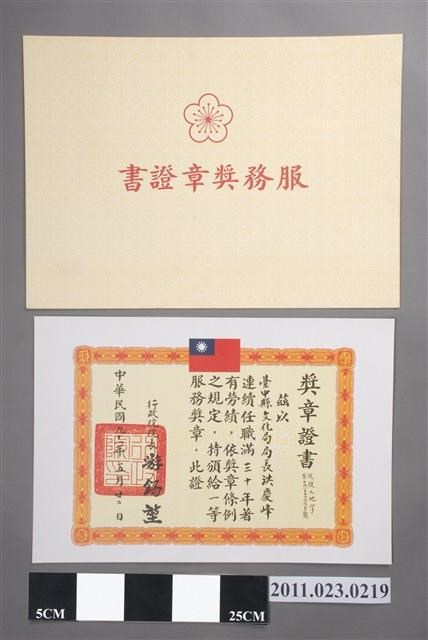 服務獎章證書
獎章證書
茲以
臺中縣文化局局長洪慶峰
連續任職滿三十年著
有勞績，依獎章條例
之規定，特頒給一等
服務獎章。此證
行政院院長 游錫堃
中華民國九十
年五月廿
日
5CM
25CM
2011.023.0219